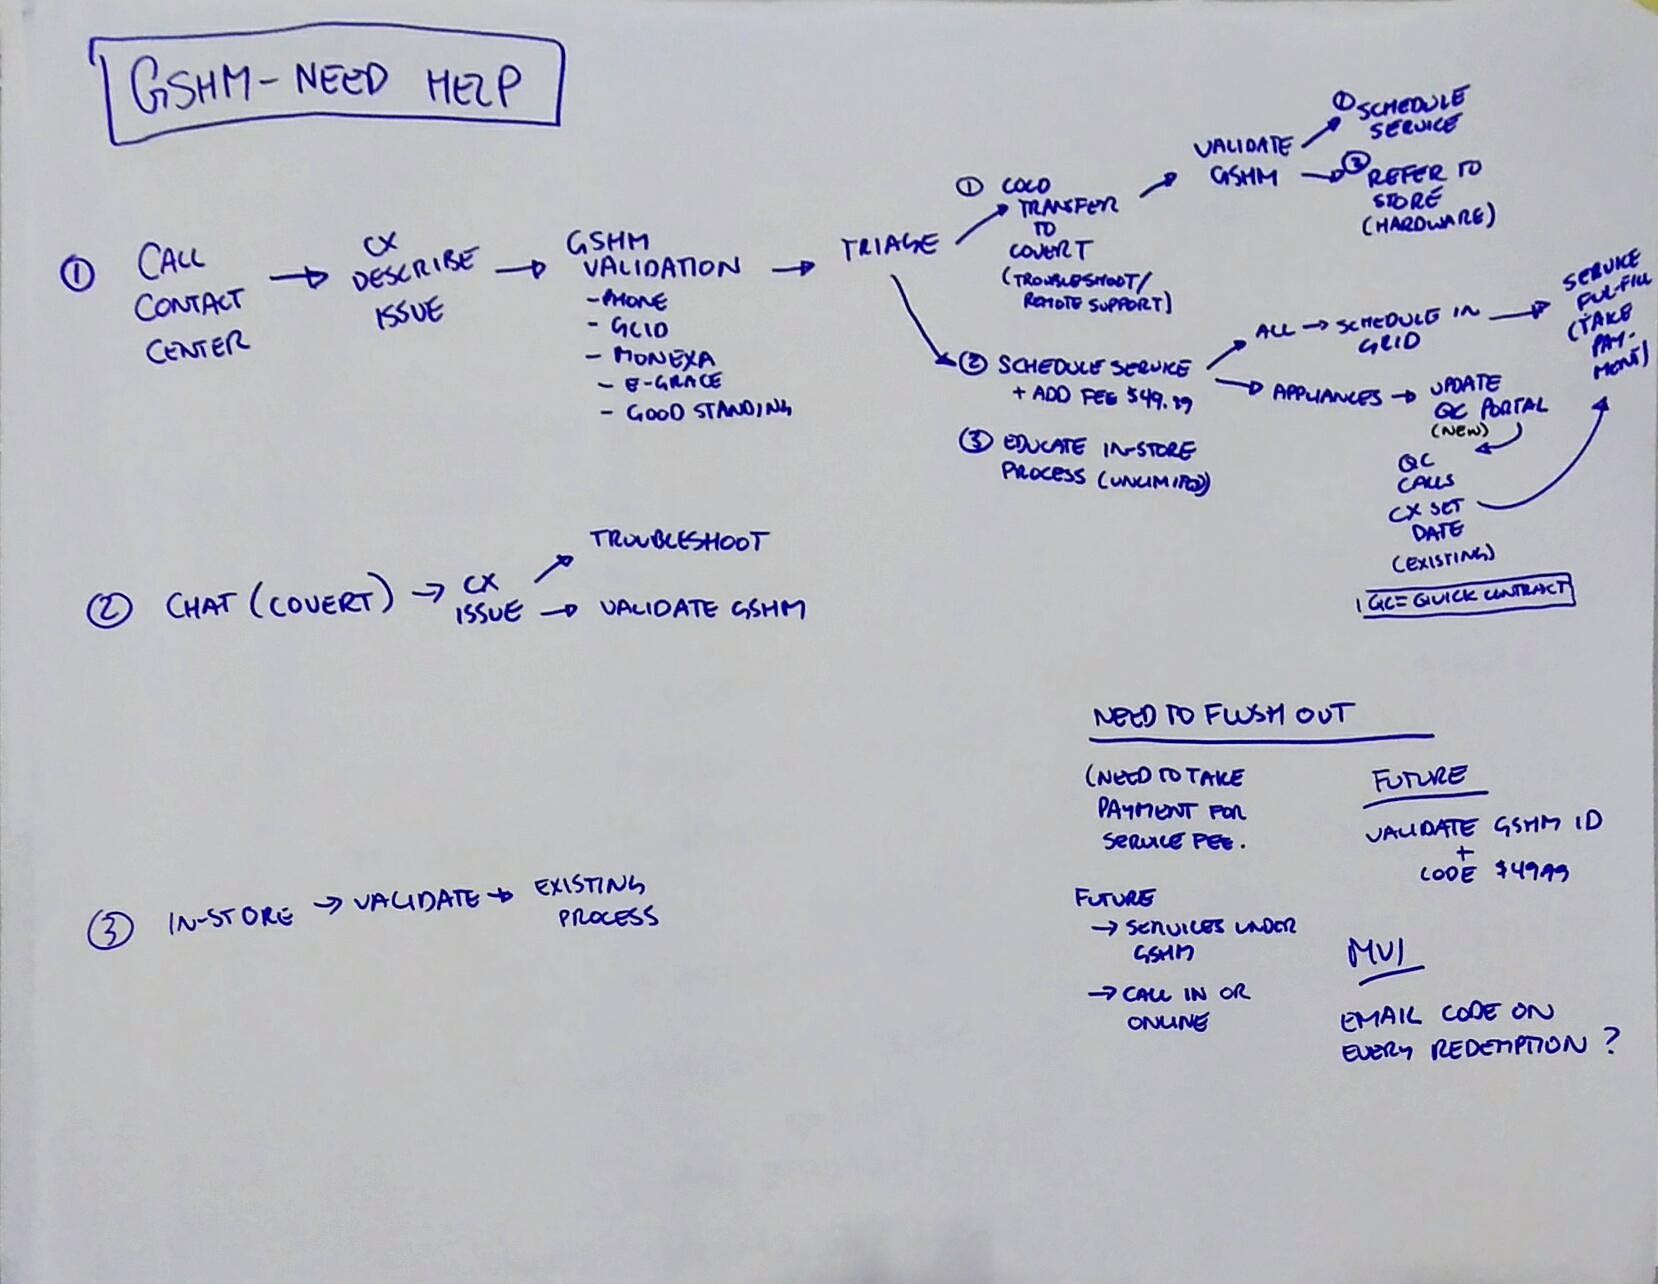 GSHM - NEED HELP
① CALL
CONTACT
CENTER
CX
DESCRIBE
ISSUE
GSHM
VALIDATION
- PHONE
- GCID
- MONEXA
- E-GRACE
- GOOD STANDING
TRIAGE
① COLD
TRANSFER
TO
COVERT
(TROUBLESHOOT/
REMOTE SUPPORT)
VALIDATE
GSHM
① SCHEDULE
SERVICE
② REFER TO
STORE
(HARDWARE)
② SCHEDULE SERVICE
+ ADD FEE $49.99
ALL → SCHEDULE IN
GRID
SERVICE
FUL-FILL
(TAKE
PAY-
MENT)
APPLIANCES → UPDATE
QC PORTAL
(NEW)
QC
CALLS
CX SET
DATE
(EXISTING)
QC = QUICK CONTRACT
③ EDUCATE IN-STORE
PROCESS (UNLIMITED)
② CHAT (COVERT) → CX
ISSUE → VALIDATE GSHM
TROUBLESHOOT
③ IN-STORE → VALIDATE → EXISTING
PROCESS
NEED TO FLUSH OUT
(NEED TO TAKE
PAYMENT FOR
SERVICE FEE.
FUTURE
→ SERVICES UNDER
GSHM
→ CALL IN OR
ONLINE
FUTURE
VALIDATE GSHM ID
+
CODE $49.99
EMAIL CODE ON
EVERY REDEMPTION ?